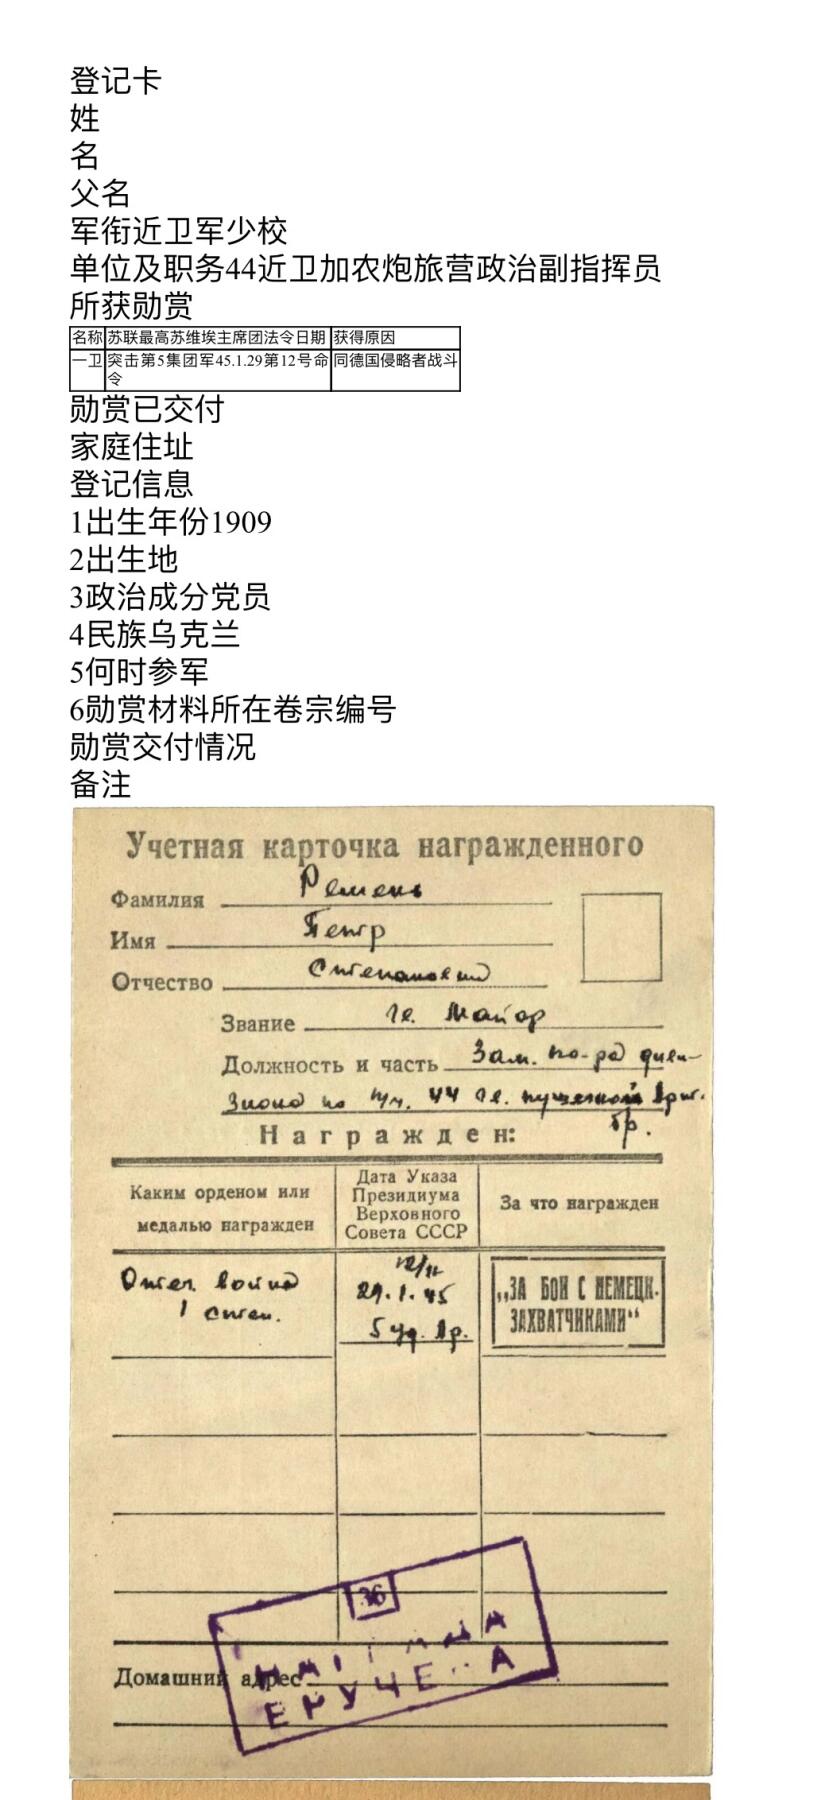 登记卡
姓
名
父名
军衔近卫军少校
单位及职务44近卫加农炮旅营政治副指挥员
所获勋赏
名称 苏联最高苏维埃主席团法令日期 获得原因
一卫 突击第5集团军45.1.29第12号命令 同德国侵略者战斗
勋赏已交付
家庭住址
登记信息
1出生年份1909
2出生地
3政治成分党员
4民族乌克兰
5何时参军
6勋赏材料所在卷宗编号
勋赏交付情况
备注
Учетная карточка награжденного
Фамилия Ремень
Имя Петр
Отчество Степанович
Звание гв. Майор
Должность и часть Зам. ко-ра диви-
зиона по п/ч. 44 гв. пушечной
бр.
Награжден:
Каким орденом или медалью награжден
Дата Указа Президиума Верховного Совета СССР
За что награжден
Отеч. война
1 степ.
12/н
29.1.45
5 уд. Ар.
„ЗА БОИ С НЕМЕЦК.
ЗАХВАТЧИКАМИ“
36
НАГРАДА
ВРУЧЕНА
Домашний адрес